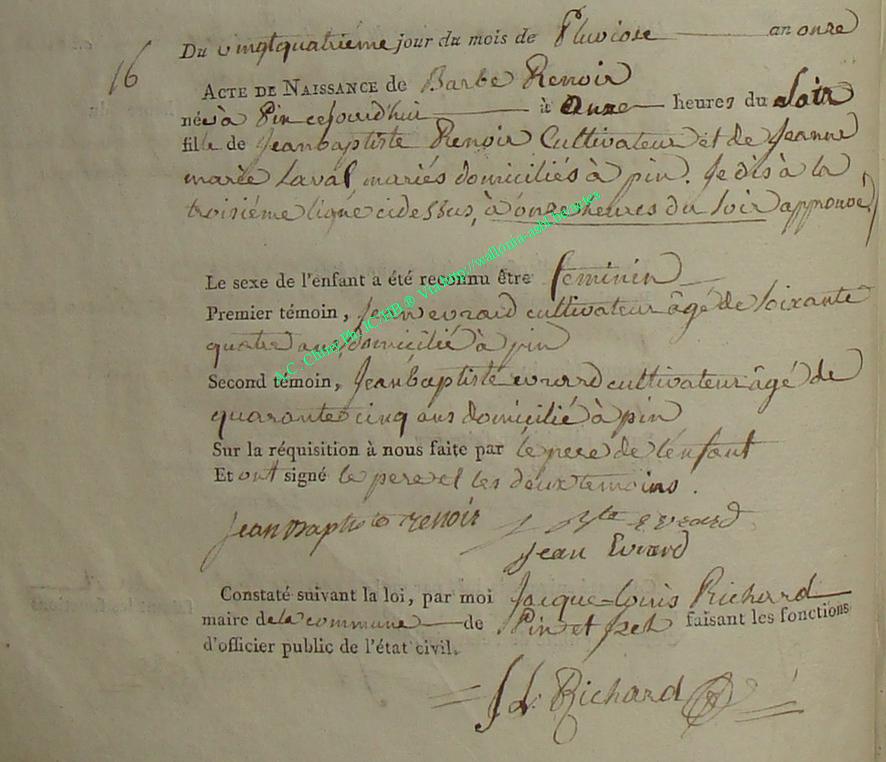 16
Du vingtquatriéme jour du mois de Pluviose an onze
ACTE DE NAISSANCE de Barbe Renoir
née à Pin cejourd'hui à onze heures du soir
fille de Jeanbaptiste Renoir Cultivateur et de Jeanne
marie Laval mariés domiciliés à pin. Je dis à la
troisiéme ligne cidessus, à onze heures du soir approuvé
Le sexe de l'enfant a été reconnu être feminin
Premier témoin, Jean evrard cultivateur âgé de soixante
quatre ans domicilié à pin
Second témoin, Jeanbaptiste evrard cultivateur âgé de
quarante cinq ans domicilié à pin
Sur la réquisition à nous faite par le pere de l'enfant
Et ont signé le pere et les deux temoins.
Jean Baptiste renoir J Bte evrard
Jean Evrard
Constaté suivant la loi, par moi Jacque-Louis Richard
maire de la commune de Pin et Izel faisant les fonctions
d'officier public de l'état civil.
J L. Richard